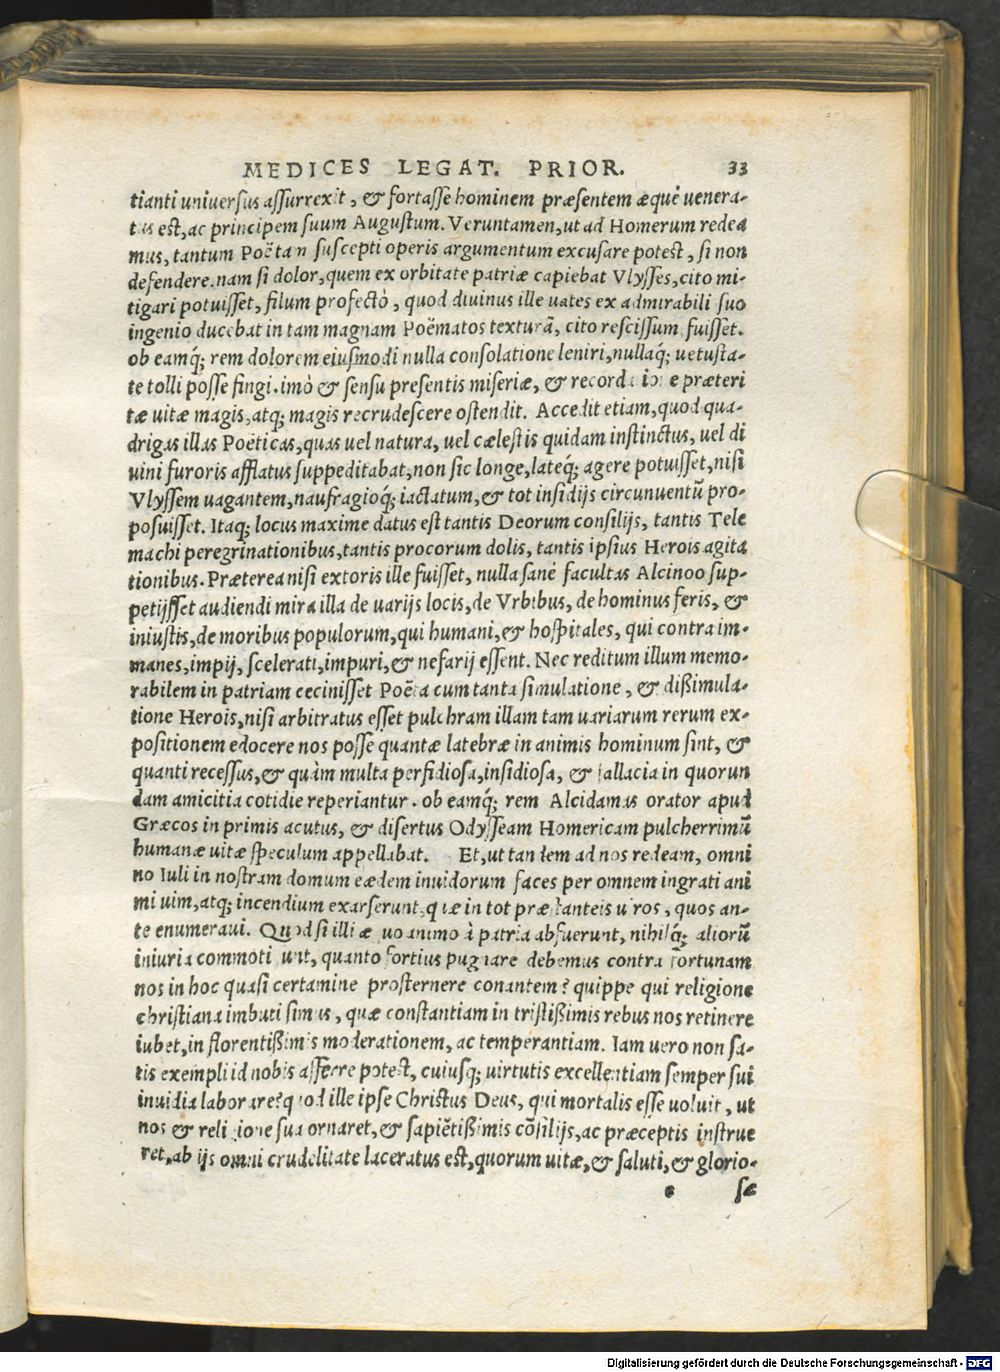 MEDICES LEGAT. PRIOR. 33
tianti uniuersus assurrexit, & fortasse hominem præsentem æquè uenera-
tus est, ac principem suum Augustum. Veruntamen, ut ad Homerum redea
mus, tantum Poëtam suscepti operis argumentum excusare potest, si non
defendere. nam si dolor, quem ex orbitate patriæ capiebat Vlysses, cito mi-
tigari potuisset, filum profectò, quod diuinus ille uates ex admirabili suo
ingenio ducebat in tam magnam Poëmatos texturã, cito rescissum fuisset.
ob eamq́; rem dolorem eiusmodi nulla consolatione leniri, nullaq́; uetusta-
te tolli posse fingi. imò & sensu presentis miseriæ, & recordatione præteri
tæ uitæ magis, atq; magis recrudescere ostendit. Accedit etiam, quod qua-
drigas illas Poëticas, quas uel natura, uel cælestis quidam instinctus, uel di
uini furoris afflatus suppeditabat, non sic longe, lateq́; agere potuisset, nisi
Vlyssem uagantem, naufragioq́; iactatum, & tot insidijs circunuentũ pro-
posuisset. Itaq; locus maxime datus est tantis Deorum consilijs, tantis Tele
machi peregrinationibus, tantis procorum dolis, tantis ipsius Herois agita
tionibus. Præterea nisi extoris ille fuisset, nulla sanè facultas Alcinoo sup-
petijsset audiendi mira illa de uarijs locis, de Vrbibus, de hominus feris, &
iniustis, de moribus populorum, qui humani, & hospitales, qui contra im-
manes, impij, scelerati, impuri, & nefarij essent. Nec reditum illum memo-
rabilem in patriam cecinisset Poëta cum tanta simulatione, & dißimula-
tione Herois, nisi arbitratus esset pulchram illam tam uariarum rerum ex-
positionem edocere nos posse quantæ latebræ in animis hominum sint, &
quanti recessus, & quàm multa perfidiosa, insidiosa, & fallacia in quorun
dam amicitia cotidie reperiantur. ob eamq́; rem Alcidamas orator apud
Græcos in primis acutus, & disertus Odysseam Homericam pulcherrimũ
humanæ uitæ speculum appellabat. Et, ut tandem ad nos redeam, omni
no Iuli in nostram domum eædem inuidorum faces per omnem ingrati ani
mi uim, atq; incendium exarserunt, quæ in tot præstanteis uiros, quos an-
te enumeraui. Quod si illi æquo animo à patria abfuerunt, nihilq́; aliorũ
iniuria commoti sunt, quanto fortius pugnare debemus contra fortunam
nos in hoc quasi certamine prosternere conantem? quippe qui religione
christiana imbuti simus, quæ constantiam in tristißimis rebus nos retinere
iubet, in florentißimis moderationem, ac temperantiam. Iam uero non sa-
tis exempli id nobis afferre potest, cuiusq; uirtutis excellentiam semper sui
inuidia laborare? quod ille ipse Christus Deus, qui mortalis esse uoluit, ut
nos & religione sua ornaret, & sapiẽtißimis cõsilijs, ac præceptis instrue
ret, ab ijs omni crudelitate laceratus est, quorum uitæ, & saluti, & glorio-
e sæ
Digitalisierung gefördert durch die Deutsche Forschungsgemeinschaft - DFG